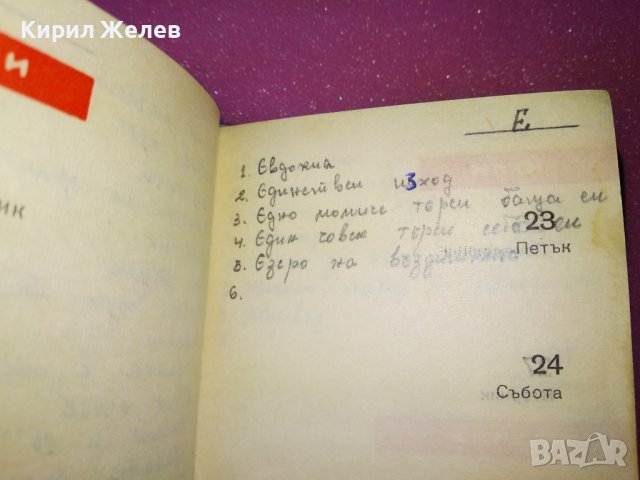 Кирил Желев
и
ик
Е
1. Евдокия
2. Единствен изход
3. Едно момиче търси баща си
23
4. Един човек търси себе си
Петък
5. Езеро на
6.
24
Събота
BAZAR